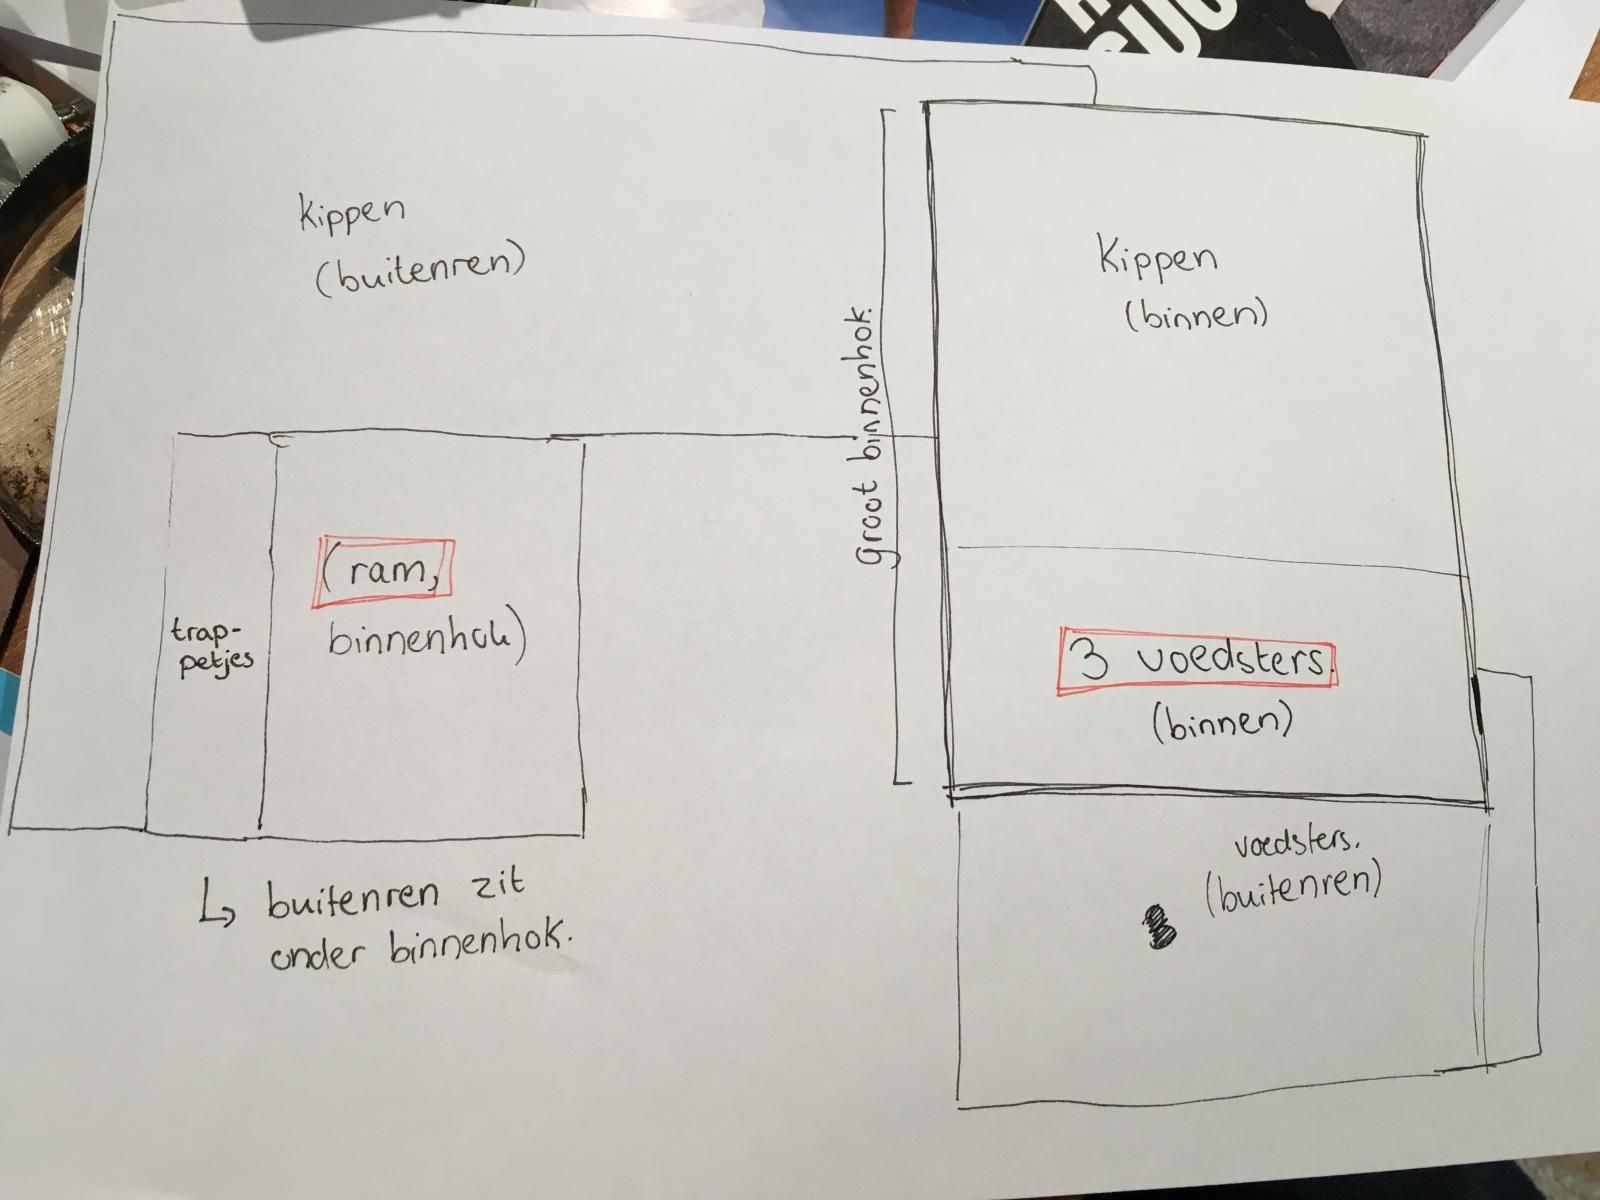 Kippen
(buitenren)
Kippen
(binnen)
Groot binnenhok.
(ram,
binnenhok)
trap-
petjes
3 voedsters.
(binnen)
voedsters.
(buitenren)
↳ buitenren zit
onder binnenhok.